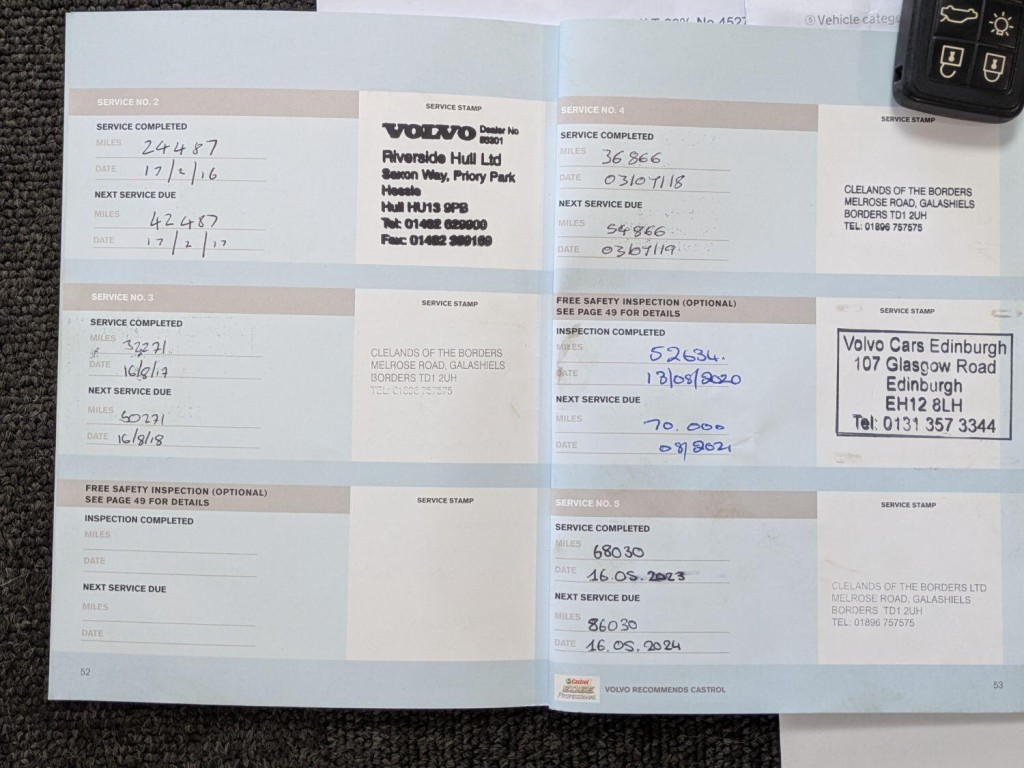 No 4527
Vehicle catego
SERVICE NO. 2
SERVICE STAMP
SERVICE COMPLETED
MILES 24487
DATE 17/2/16
NEXT SERVICE DUE
MILES 42487
DATE 17/2/17
VOLVO Dealer No
Riverside Hull Ltd
Saxon Way, Priory Park
Hessle
Hull HU13 9PB
Tel: 01482 629900
Fax: 01482
SERVICE NO. 3
SERVICE STAMP
SERVICE COMPLETED
MILES 32271
DATE 16/8/17
NEXT SERVICE DUE
MILES 50271
DATE 16/8/18
CLELANDS OF THE BORDERS
MELROSE ROAD, GALASHIELS
BORDERS TD1 2UH
TEL: 01896 757575
FREE SAFETY INSPECTION (OPTIONAL)
SEE PAGE 49 FOR DETAILS
SERVICE STAMP
INSPECTION COMPLETED
MILES
DATE
NEXT SERVICE DUE
MILES
DATE
52
SERVICE NO. 4
SERVICE STAMP
SERVICE COMPLETED
MILES 36866
DATE 03/07/18
NEXT SERVICE DUE
MILES 54866
DATE 03/07/19
CLELANDS OF THE BORDERS
MELROSE ROAD, GALASHIELS
BORDERS TD1 2UH
TEL: 01896 757575
FREE SAFETY INSPECTION (OPTIONAL)
SEE PAGE 49 FOR DETAILS
SERVICE STAMP
INSPECTION COMPLETED
MILES 52634.
DATE 13/08/2020
NEXT SERVICE DUE
MILES 70.000
DATE 08/2021
Volvo Cars Edinburgh
107 Glasgow Road
Edinburgh
EH12 8LH
Tel: 0131 357 3344
SERVICE NO. 5
SERVICE STAMP
SERVICE COMPLETED
MILES 68030
DATE 16.05.2023
NEXT SERVICE DUE
MILES 86030
DATE 16.05.2024
CLELANDS OF THE BORDERS LTD
MELROSE ROAD, GALASHIELS
BORDERS TD1 2UH
TEL: 01896 757575
Castrol
EDGE
Professional
VOLVO RECOMMENDS CASTROL
53